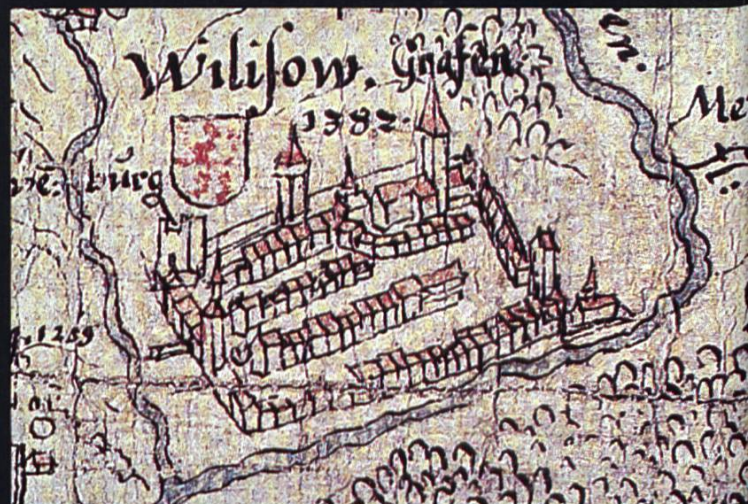 Wilisow. Grafen
1382.
Me
burg
1259